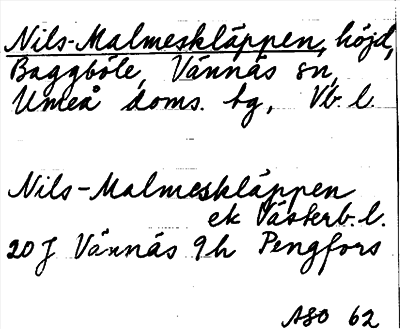 Nils-Malmeskläppen, höjd,
Baggböle, Vännäs sn,
Umeå doms. bg, Vb. l.
Nils-Malmeskläppen
ek Västerb. l.
20J Vännäs 9h Pengfors
ASO 62